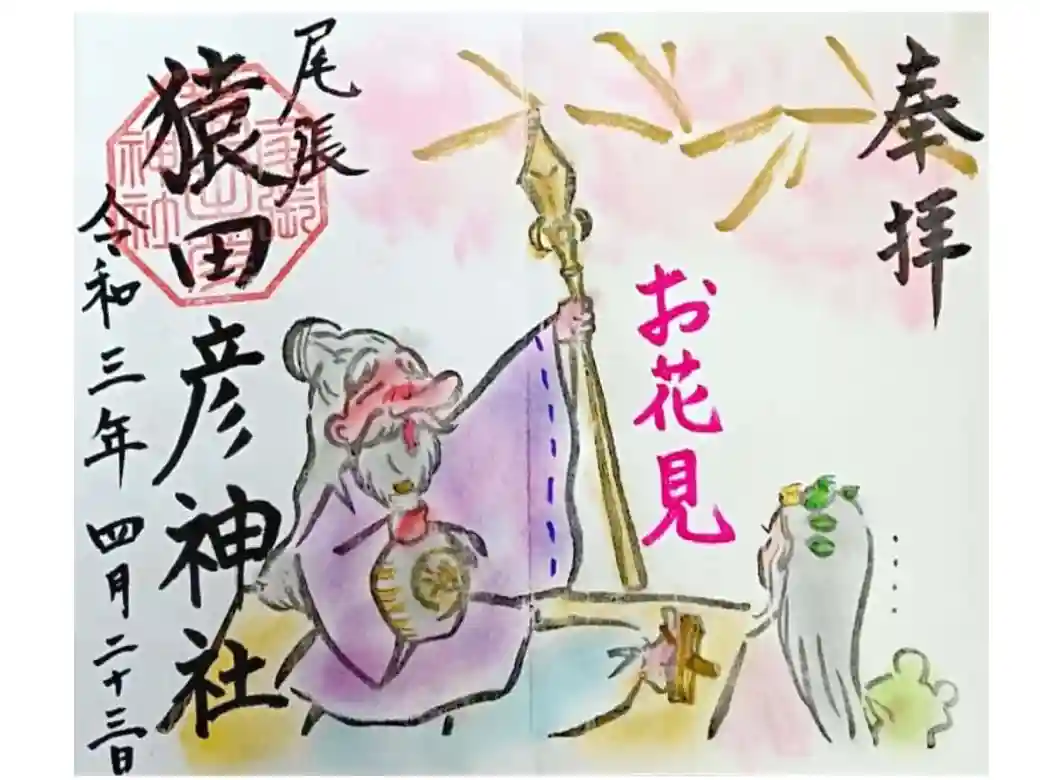 奉拝
お花見
尾張
猿田彦神社
令和三年四月二十三日